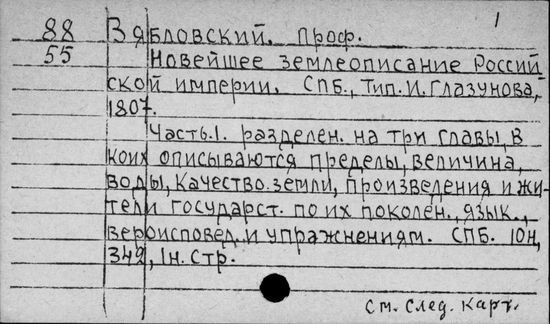 1
88 Зябловский. Проф.
55 Новейшее землеописание Россий
ской империи. СПБ., Тип. И. Глазунова,
1807.
Часть.1. разделен. на три главы, в
коих описываются пределы, величина,
воды, качество земли, произведения и жи-
тели государст. по их поколен., язык.,
вероисповед. и упражнениям. СПБ. 10н,
349, 1н. стр.
См. след. карт.